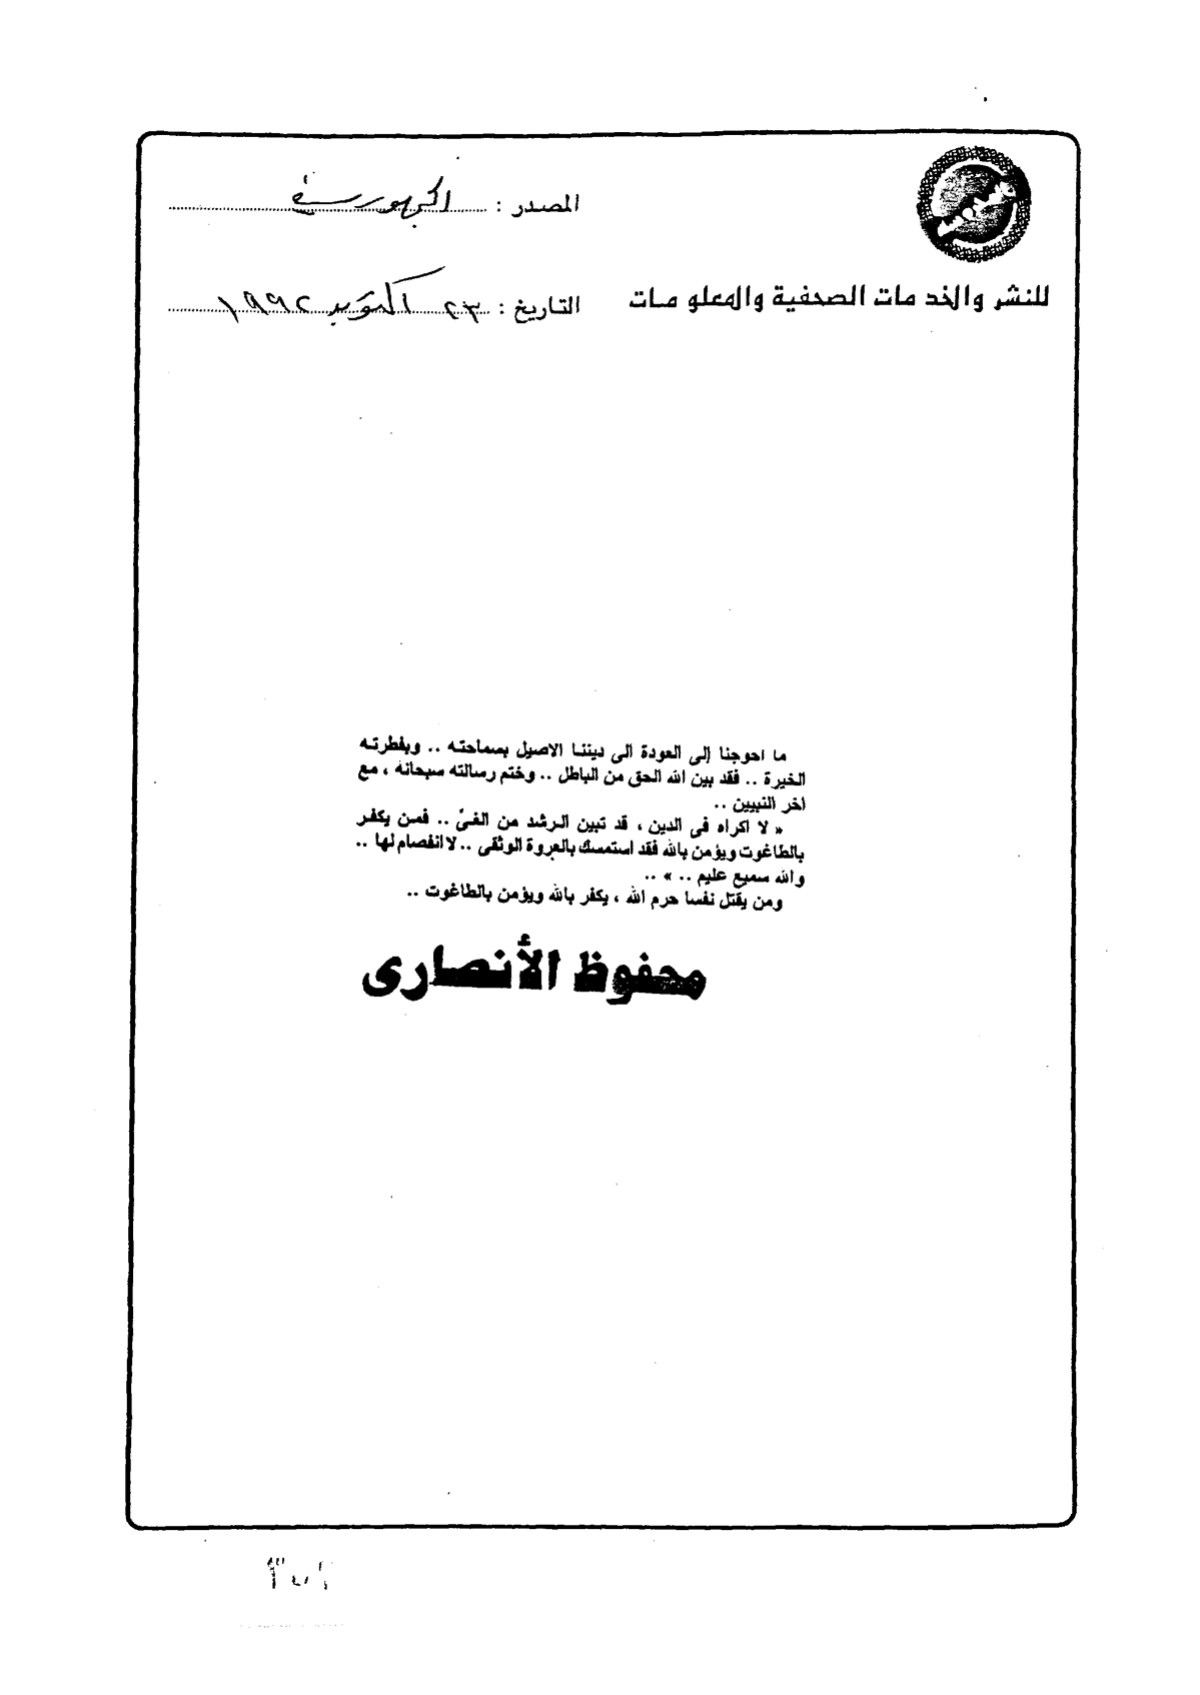 المصدر : الجمهورية
للنشر والخدمات الصحفية والمعلومات
التاريخ : ٢٣ أكتوبر ١٩٩٢
ما احوجنا إلى العودة الى ديننا الاصيل بسماحته .. وبفطرته
الخيرة .. فقد بين الله الحق من الباطل .. وختم رسالته سبحانه ، مع
اخر النبيين ..
« لا اكراه فى الدين ، قد تبين الرشد من الغىّ .. فمن يكفر
بالطاغوت ويؤمن بالله فقد استمسك بالعروة الوثقى .. لا انفصام لها ..
والله سميع عليم .. » ..
ومن يقتل نفسا حرم الله ، يكفر بالله ويؤمن بالطاغوت ..
محفوظ الأنصارى